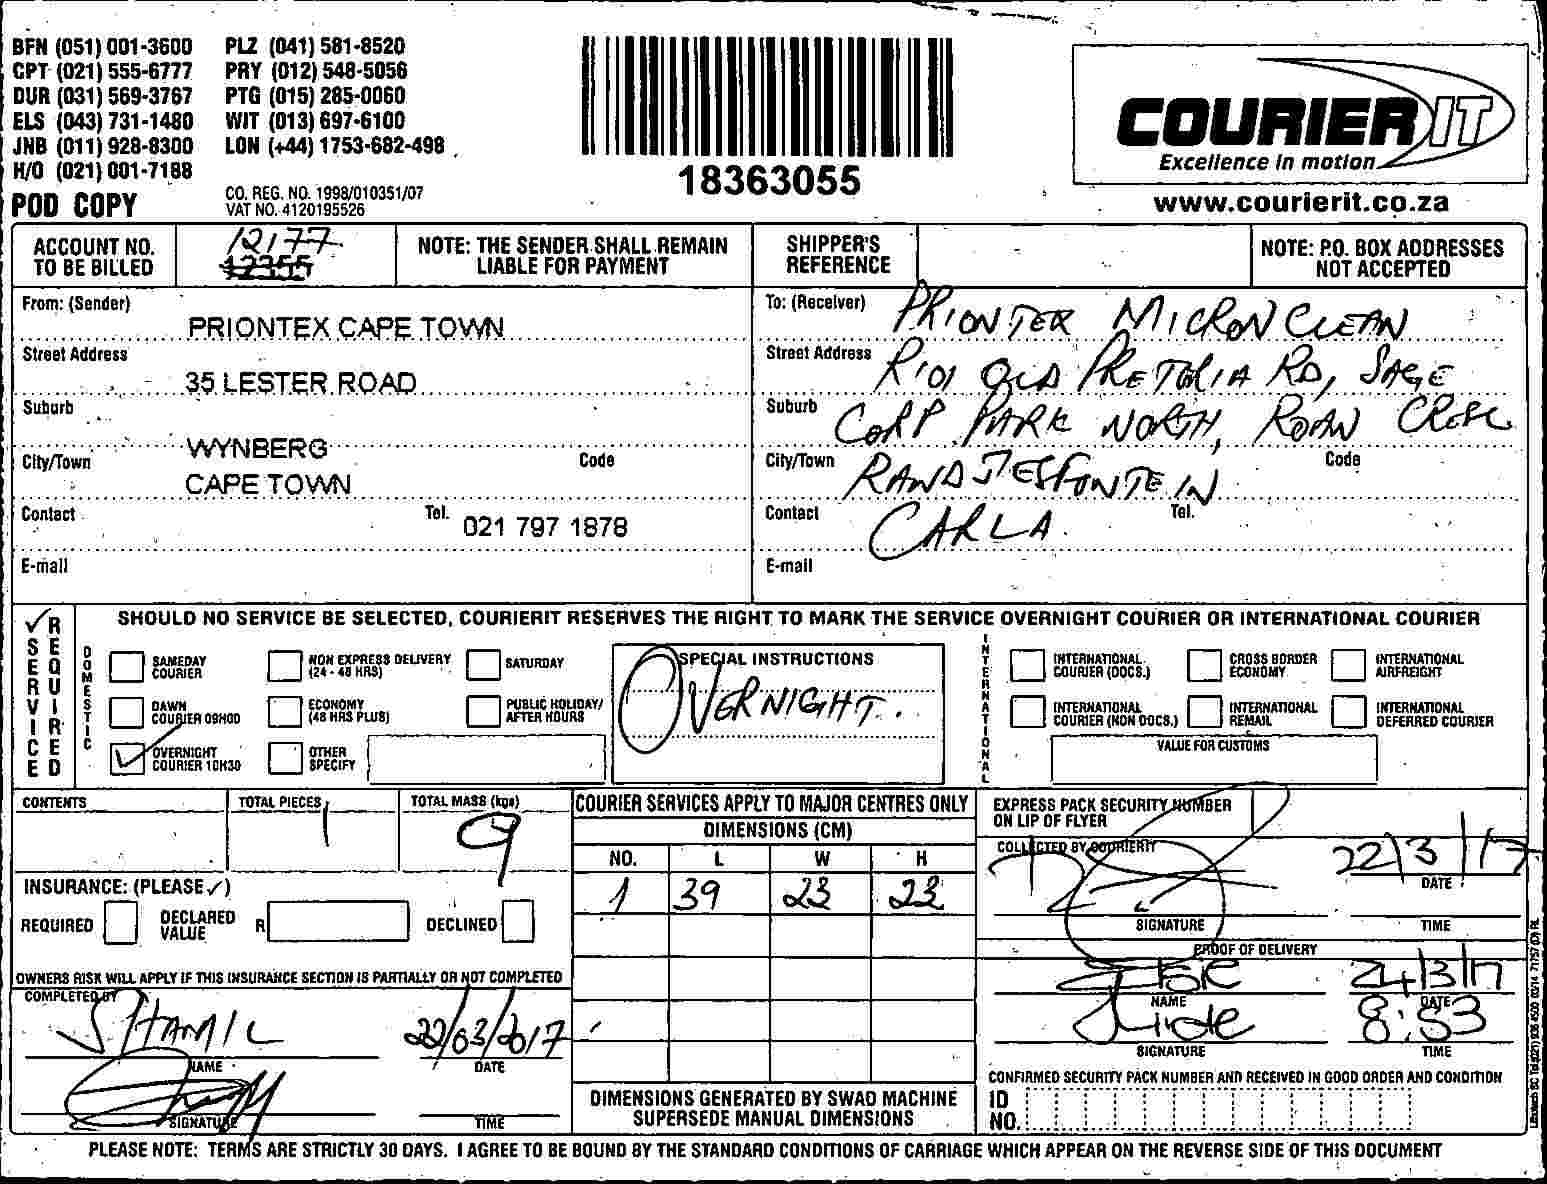 BFN (051) 001-3600 PLZ (041) 581-8520
CPT (021) 555-6777 PRY (012) 548-5056
DUR (031) 569-3767 PTG (015) 285-0060
ELS (043) 731-1480 WIT (013) 697-6100
JNB (011) 928-8300 LON (+44) 1753-682-498
H/O (021) 001-7188
POD COPY
CO. REG. NO. 1998/010351/07
VAT NO. 4120195526
18363055
COURIER IT
Excellence in motion
www.courierit.co.za
ACCOUNT NO.
TO BE BILLED
12177
12355
NOTE: THE SENDER SHALL REMAIN
LIABLE FOR PAYMENT
SHIPPER'S
REFERENCE
NOTE: P.O. BOX ADDRESSES
NOT ACCEPTED
From: (Sender)
PRIONTEX CAPE TOWN
Street Address
35 LESTER ROAD
Suburb
WYNBERG
City/Town Code
CAPE TOWN
Contact Tel. 021 797 1878
E-mail
To: (Receiver) PRIONTEX MICRONCLEAN
Street Address R101 OLD PRETORIA RD, SAGE
Suburb CORP PARK NORTH, ROAN CRESC
City/Town RANDJESFONTEIN Code
Contact CARLA Tel.
E-mail
SERVICE REQUIRED
SHOULD NO SERVICE BE SELECTED, COURIERIT RESERVES THE RIGHT TO MARK THE SERVICE OVERNIGHT COURIER OR INTERNATIONAL COURIER
DOMESTIC
SAMEDAY
COURIER
NON EXPRESS DELIVERY
(24 - 48 HRS)
SATURDAY
DAWN
COURIER 09H00
ECONOMY
(48 HRS PLUS)
PUBLIC HOLIDAY/
AFTER HOURS
OVERNIGHT
COURIER 10H30
OTHER
SPECIFY
SPECIAL INSTRUCTIONS
OVERNIGHT.
INTERNATIONAL
INTERNATIONAL
COURIER (DOCS.)
CROSS BORDER
ECONOMY
INTERNATIONAL
AIRFREIGHT
INTERNATIONAL
COURIER (NON DOCS.)
INTERNATIONAL
REMAIL
INTERNATIONAL
DEFERRED COURIER
VALUE FOR CUSTOMS
CONTENTS
TOTAL PIECES
1
TOTAL MASS (kgs)
9
INSURANCE: (PLEASE ✓)
REQUIRED
DECLARED
VALUE
R
DECLINED
OWNERS RISK WILL APPLY IF THIS INSURANCE SECTION IS PARTIALLY OR NOT COMPLETED
COMPLETED BY
SHAMIL 22/03/2017
NAME DATE
SIGNATURE TIME
COURIER SERVICES APPLY TO MAJOR CENTRES ONLY
DIMENSIONS (CM)
NO. L W H
1 39 23 23
DIMENSIONS GENERATED BY SWAD MACHINE
SUPERSEDE MANUAL DIMENSIONS
EXPRESS PACK SECURITY NUMBER
ON LIP OF FLYER
COLLECTED BY COURIERIT
22/3/17
DATE
SIGNATURE TIME
PROOF OF DELIVERY
24/3/17
NAME DATE
8:53
SIGNATURE TIME
CONFIRMED SECURITY PACK NUMBER AND RECEIVED IN GOOD ORDER AND CONDITION
ID
NO.
PLEASE NOTE: TERMS ARE STRICTLY 30 DAYS. I AGREE TO BE BOUND BY THE STANDARD CONDITIONS OF CARRIAGE WHICH APPEAR ON THE REVERSE SIDE OF THIS DOCUMENT